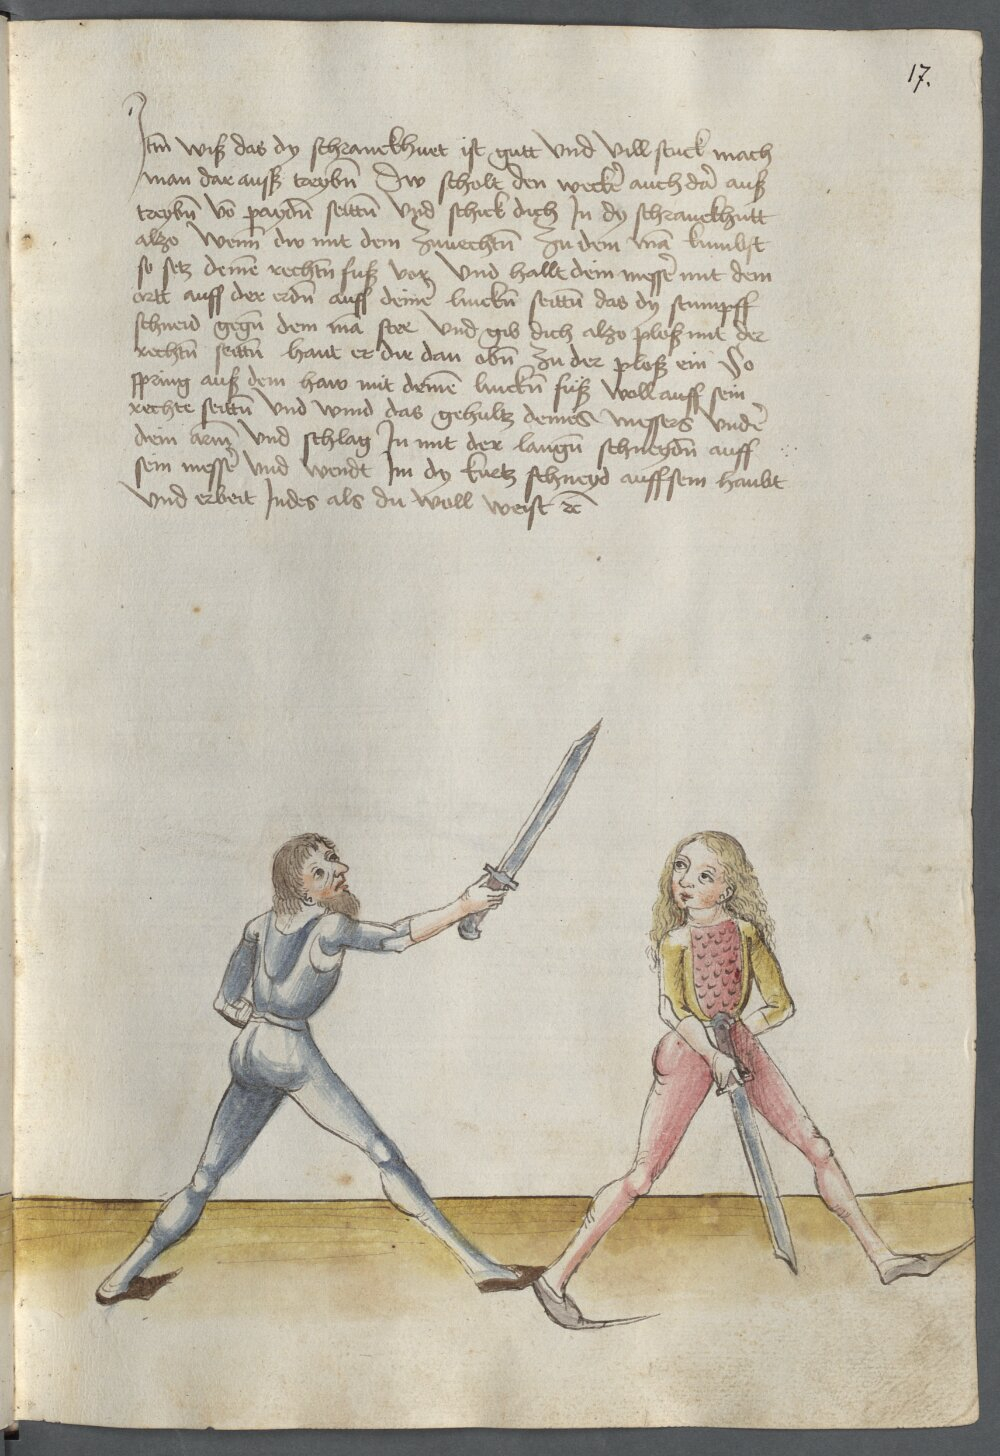 17.
Itm̄ wiß das dy schranckhuet ist gutt vnd vill stuck mach
man dar auß treybn̄ Dw scholt den wecke͛ auch da͛ auß
treybn̄ vō paydn̄ seittn̄ vnd schick dich In dy schranckhutt
alzo wenn̄ dw mit dem zuuechtn̄ zu dem mā kumbst
so setz denē rechtn̄ fuß vor vnd hallt dein messe͛ mit dem
ortt auff der erdn̄ auff deine͛ linckn̄ seittn̄ das dy stumpff
schneid gegn̄ dem mā stee vnd gib dich alzo ploß mit der
rechtn̄ seittn̄ haut er dir dan obn̄ zu der ploß ein So
spring auß dem haw mit denē linckn̄ fuß woll auff sein
rechte seittn̄ vnd wind das gehultz deines messers vnde͛
dein arm̄ vnd schlag In mit der langn̄ schneydn̄ auff
sein messe͛ vnd wendt Im dy kurtz schneyd auff sein haubt
vnd erbeit Indes als du woll weist ꝛc̄